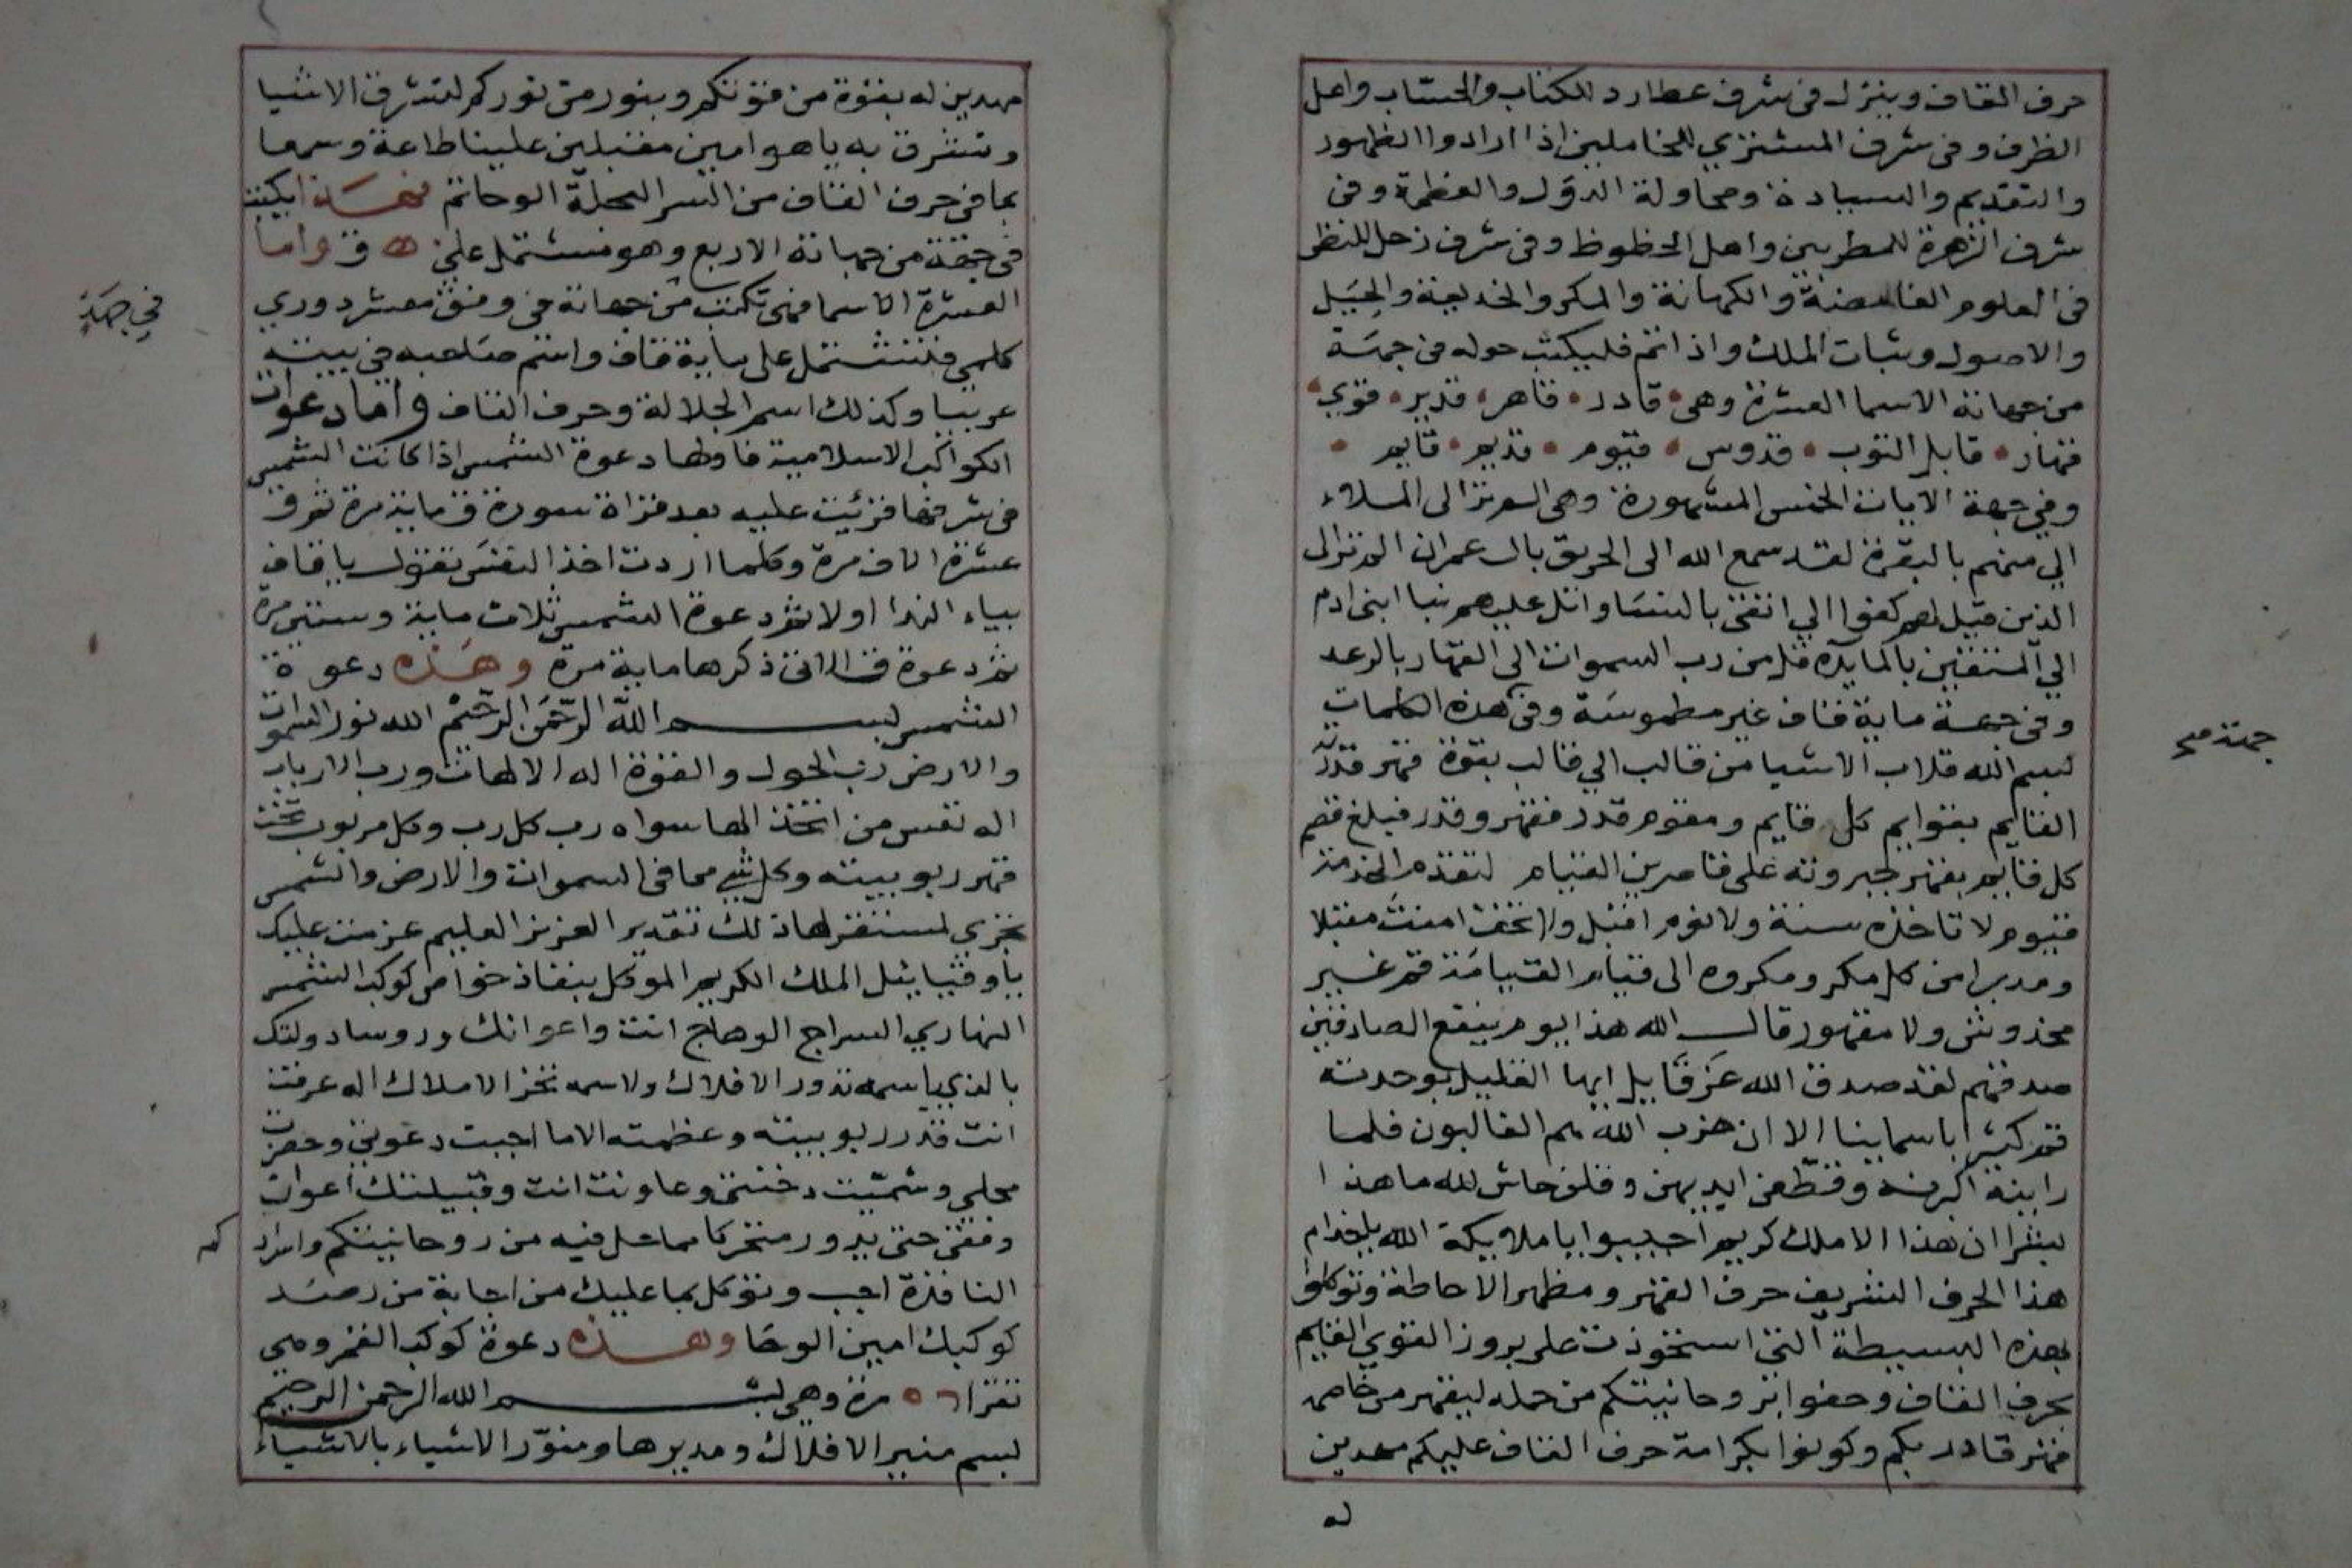 حرف القاف وينزل في شرف عطارد للكتاب والحساب واهل
الظرف وفي شرف المشتري للخاملين اذا ارادوا الظهور
والتقديم والسيادة ومحاولة الدول والعظمة وفي
شرف الزهرة للمطربين واهل الحظوظ وفي شرف زحل للنظر
في العلوم الغامضة والكهانة والمكر والخديعة والحيل
والاصول وثبات الملك واذا تم فليكتب حوله في جهة
من جهاته الاسما العشرة وهي قادر قاهر قدير قوي
قهار قابل التوب قدوس قيوم قديم قايم
وفي جهة الايات الخمس المشهورة وهي الم تر الى الملاء
الي منهم بالبقرة لقد سمع الله الى الحريق بال عمران الم تر الى
الذين قيل لهم كفوا الي اتقى بالنسا واتل عليهم نبا ابنى ادم
الي المتقين بالمايدة قل من رب السموات الى القهار بالرعد
وفي جهة ماية قاف غير مطموسة وفي هذه الكلمات
جهة صح
بسم الله قلاب الاشيا من قالب الي قالب بقوة قهر قدرته
القايم بقوايم كل قايم ومقوم قدر فقهر وقدر فبلغ قصم
كل قايم بقهر جبروته على قاصرين القيام لتقدم الخدمة
قيوم لا تاخذه سنة ولا نوم اقبل ولا تخف امنت مقبلا
ومدبرا من كل مكر ومكروه الى قيام القيامة قم غير
مخدوش ولا مقهور قال الله هذا يوم ينفع الصادقين
صدقهم لقد صدق الله عز قايل ايها القليل بوحدته
قم كثيرا باسماينا الا ان حزب الله هم الغالبون فلما
راينه اكبرنه وقطعن ايديهن وقلن حاش لله ما هذا
بشرا ان هذا الا ملك كريم اجيبوا يا ملايكة الله يا خدام
هذا الحرف الشريف حرف القهر ومظهر الاحاطة وتوكلوا
بهذه البسيطة التي استحوذت على بروز القوي القايم
بحرف القاف وحفوا بروحانيتكم من حمله ليقهر من خاصمه
قهر قادر بكم وكونوا بكرامة حرف القاف عليكم مهدين
له
مهدين له بقوة من قوتكم وبنور من نوركم لتشرق الاشيا
وتشرق به ياهوا مبين مقبلين علينا طاعة وسمعا
بما في حرف القاف من السر العجلة الوحا تم فهـذا يكتب
في جهة من جهاته الاربع وهو مشتمل على ق واما
العشرة الاسما فهي تكتب من جهاته في وفق معشر دوري
في جهة
كلمي فتشتمل على ماية قاف واسم صاحبه في بيته
غريبا وكذلك اسم الجلالة وحرف القاف واما دعوات
الكواكب الاسلامية فاولها دعوة الشمس اذا كانت الشمس
في شرفها قرئت عليه بعد قراة سورة ق ماية مرة ثم ق
عشرة الاف مرة وكلما اردت اخذ النفس تقول ياقاف
بياء الندا اولا ثم دعوة الشمس ثلاث ماية وستين مرة
ثم دعوة ق الاتى ذكرها ماية مرة وهذه دعوة
الشمس بسم الله الرحمن الرحيم الله نور السموات
والارض رب الحول والقوة اله الالهات ورب الارباب
اله نفس من اتخذ الها سواه رب كل رب وكل مربوب تحت
قهر ربوبيته وكل شيء مما في السموات والارض والشمس
تجري لمستقر لها ذلك تقدير العزيز العليم عزمت عليك
ياوقيائيل الملك الكريم الموكل بنفاذ خواص كوكب الشمس
النهاري السراج الوهاج انت واعوانك وروسا دولتك
بالذي باسمه تدور الافلاك ولاسمه تخر الاملاك اله عرفت
انت قدر ربوبيته وعظمته الا ما اجبت دعوتي وحضرت
محلي وشميت دخنتي وعاونت انت وقبيلتك اعوان
وفقي حتى يدور متحركا مما حل فيه من روحانيتكم واسراركم
النافذة اجب وتوكل بما عليك من اجابة من رصد
كوكبك امين الوحا وهـذه دعوة كوكب القمر وهي
تقرا ٥٦ مرة وهي بسم الله الرحمن الرحيم
بسم منير الافلاك ومديرها ومنور الاشياء بالاشياء